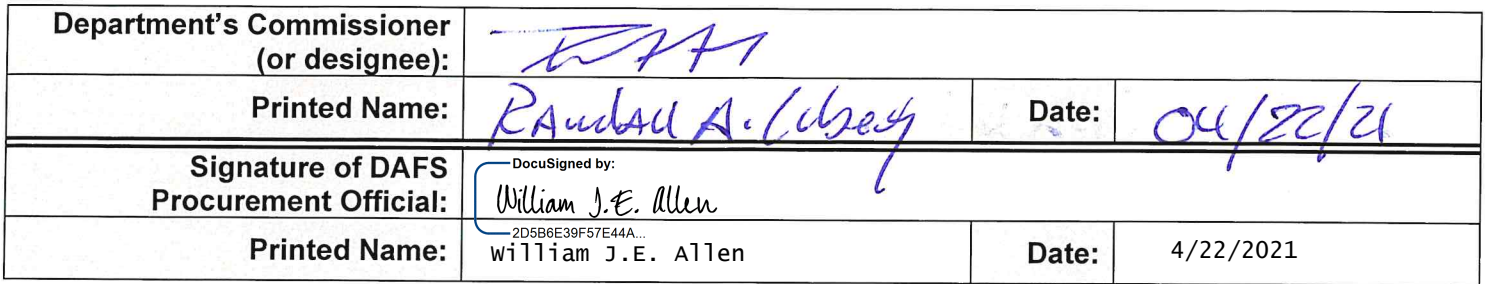 Department's Commissioner
(or designee):
Printed Name: Randall A. Liberty Date: 04/22/21
Signature of DAFS
Procurement Official:
DocuSigned by:
William J.E. Allen
2D5B6E39F57E44A...
Printed Name: William J.E. Allen Date: 4/22/2021